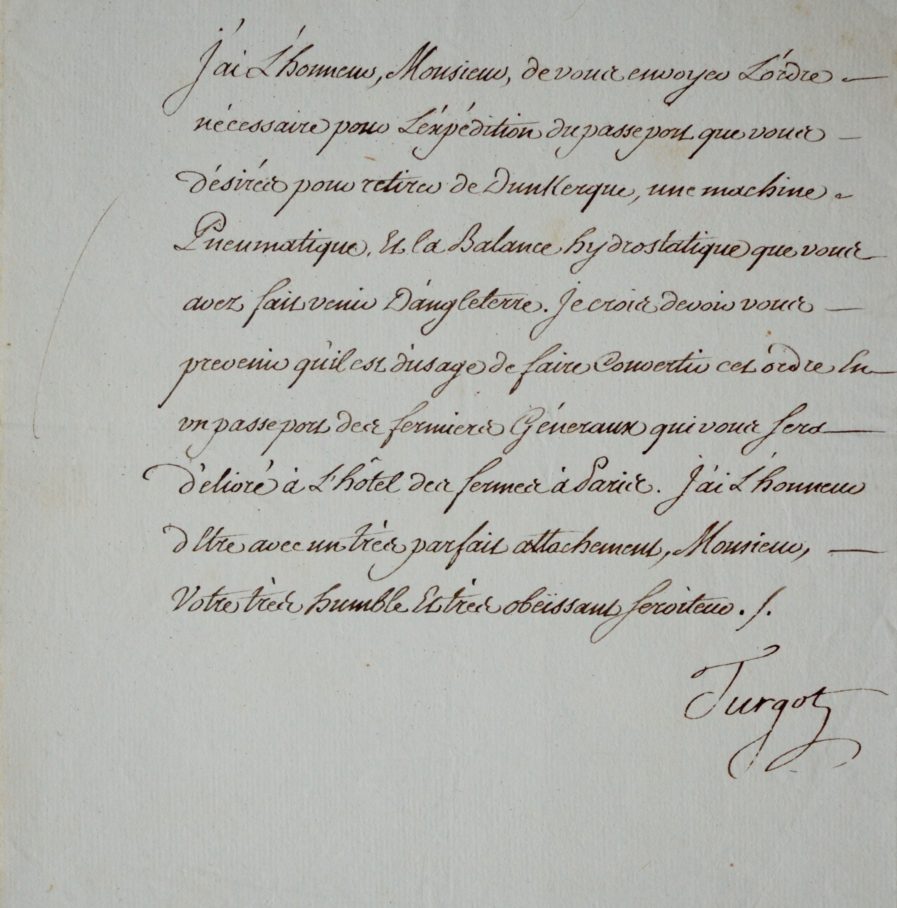 J'ai L'honneur, Monsieur, de vous envoyer L'ordre
nécessaire pour L'éxpédition du passeport que vous
désirés pour retirer de Dunkerque, une machine
Pneumatique, Et la Balance hydrostatique que vous
avez fait venir D'angleterre. Je crois devoir vous
prevenir qu'il est d'usage de faire Convertir cet ordre En
un passeport des fermiers Géneraux qui vous sera
délivré à L'hôtel des fermes à Paris. J'ai L'honneur
d'Etre avec un très parfait attachement, Monsieur,
Votre très humble Et très obeïssant serviteur ./.
Turgot